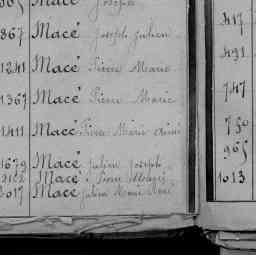 Macé Joseph
867 Macé Joseph Julien
1241 Macé Pierre Marie
1367 Macé Pierre Marie
1411 Macé Pierre Marie Aimé
1679 Macé Julien Joseph
2102 Macé Pierre
2017 Macé Julien Marie
417
491
747
750
965
1013